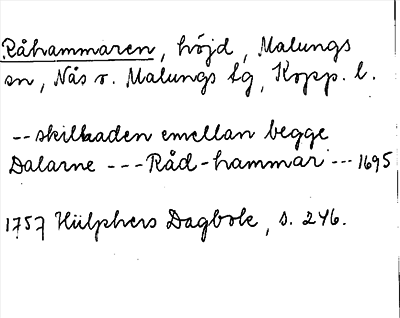 Råhammaren, höjd, Malungs
sn, Nås o. Malungs tg, Kopp. l.
-- skilnaden emellan begge
Dalarne --- Råd-hammar --- 1695
1757 Hülphers Dagbok, s. 246.